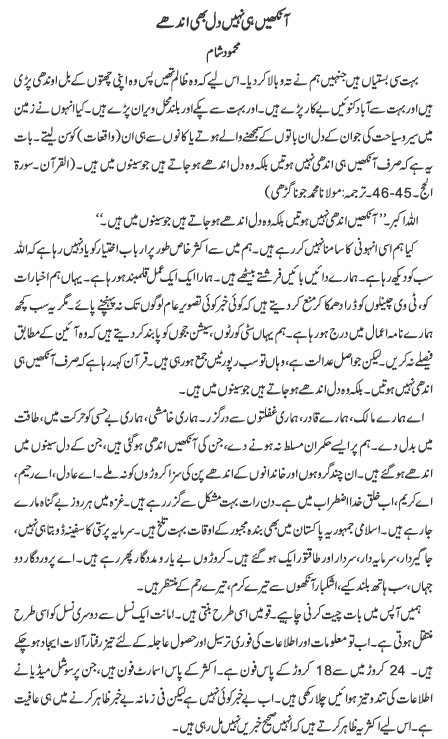 آنکھیں ہی نہیں دل بھی اندھے
محمود شام
بہت سی بستیاں ہیں جنہیں ہم نے تہ و بالا کر دیا۔ اس لیے کہ وہ ظالم تھیں پس وہ اپنی چھتوں کے بل اوندھی پڑی
ہیں اور بہت سے آباد کنوئیں بے کار پڑے ہیں۔ اور بہت سے پکے اور بلند محل ویران پڑے ہیں۔ کیا انہوں نے زمین
میں سیر و سیاحت کی جو ان کے دل ان باتوں کے سمجھنے والے ہوتے یا کانوں سے ہی ان (واقعات) کو سن لیتے۔ بات
یہ ہے کہ صرف آنکھیں ہی اندھی نہیں ہوتیں بلکہ وہ دل اندھے ہو جاتے ہیں جو سینوں میں ہیں۔ (القرآن۔ سورۃ
الحج۔ 45-46۔ ترجمہ: مولانا محمد جونا گڑھی)
اللہ اکبر۔ ’’آنکھیں اندھی نہیں ہوتیں بلکہ وہ دل اندھے ہو جاتے ہیں جو سینوں میں ہیں۔‘‘
کیا ہم اسی انہونی کا سامنا نہیں کر رہے ہیں۔ ہم میں سے اکثر خاص طور پر ارباب اختیار کو یاد نہیں رہا ہے کہ اللہ
سب کو دیکھ رہا ہے۔ ہمارے دائیں بائیں فرشتے بیٹھے ہیں۔ ہمارا ایک ایک عمل قلمبند ہو رہا ہے۔ یہاں ہم اخبارات
کو، ٹی وی چینلوں کو ڈرا دھمکا کر منع کر دیتے ہیں کہ کوئی خبر کوئی تصویر عام لوگوں تک نہ پہنچنے پائے۔ مگر یہ سب کچھ
ہمارے نامہ اعمال میں درج ہو رہا ہے۔ ہم یہاں سٹی کورٹوں، سیشن ججوں کو پابند کر دیتے ہیں کہ وہ آئین کے مطابق
فیصلے نہ کریں۔ لیکن جو اصل عدالت ہے، وہاں تو سب رپورٹیں جمع ہو رہی ہیں۔ قرآن کہہ رہا ہے کہ صرف آنکھیں ہی
اندھی نہیں ہوتیں۔ بلکہ وہ دل اندھے ہو جاتے ہیں جو سینوں میں ہیں۔
اے ہمارے مالک، ہمارے قادر، ہماری غفلتوں سے درگزر۔ ہماری خامشی، ہماری بے حسی کو حرکت میں، طاقت
میں بدل دے۔ ہم پر ایسے حکمران مسلط نہ ہونے دے، جن کی آنکھیں اندھی ہو گئی ہیں، جن کے دل سینوں میں
اندھے ہو گئے ہیں۔ ان چند گروہوں اور خاندانوں کے اندھے پن کی سزا کروڑوں کو نہ ملے۔ اے عادل، اے رحیم،
اے کریم، اب خلق خدا اضطراب میں ہے۔ دن رات بہت مشکل سے گزر رہے ہیں۔ غزہ میں ہر روز بے گناہ مارے
جا رہے ہیں۔ اسلامی جمہوریہ پاکستان میں بھی بندہ مجبور کے اوقات بہت تلخ ہیں۔ سرمایہ پرستی کا سفینہ ڈوبتا ہی نہیں،
جاگیردار، سرمایہ دار، سردار اور طاقتور ایک ہو گئے ہیں۔ کروڑوں بے یار و مددگار پھر رہے ہیں۔ اے پروردگار دو
جہاں، سب ہاتھ بلند کیے، اشکبار آنکھوں سے تیرے کرم، تیرے رحم کے منتظر ہیں۔
ہمیں آپس میں بات چیت کرنی چاہیے۔ قومیں اسی طرح بنتی ہیں۔ امانت ایک نسل سے دوسری نسل کو اسی طرح
منتقل ہوتی ہے۔ اب تو معلومات اور اطلاعات کی فوری ترسیل اور حصول عاجلہ کے لئے تیز رفتار آلات ایجاد ہو چکے
ہیں۔ 24 کروڑ میں سے 18 کروڑ کے پاس فون ہے۔ اکثر کے پاس اسمارٹ فون ہیں، جن پر سوشل میڈیا نے
اطلاعات کی تند و تیز ہوائیں چلا رکھی ہیں۔ اب بے خبر کوئی نہیں ہے لیکن فی زمانہ بے خبر ظاہر کرنے میں ہی عافیت
ہے۔ اس لیے اکثر یہ ظاہر کرتے ہیں کہ انہیں صحیح خبریں نہیں مل رہی ہیں۔